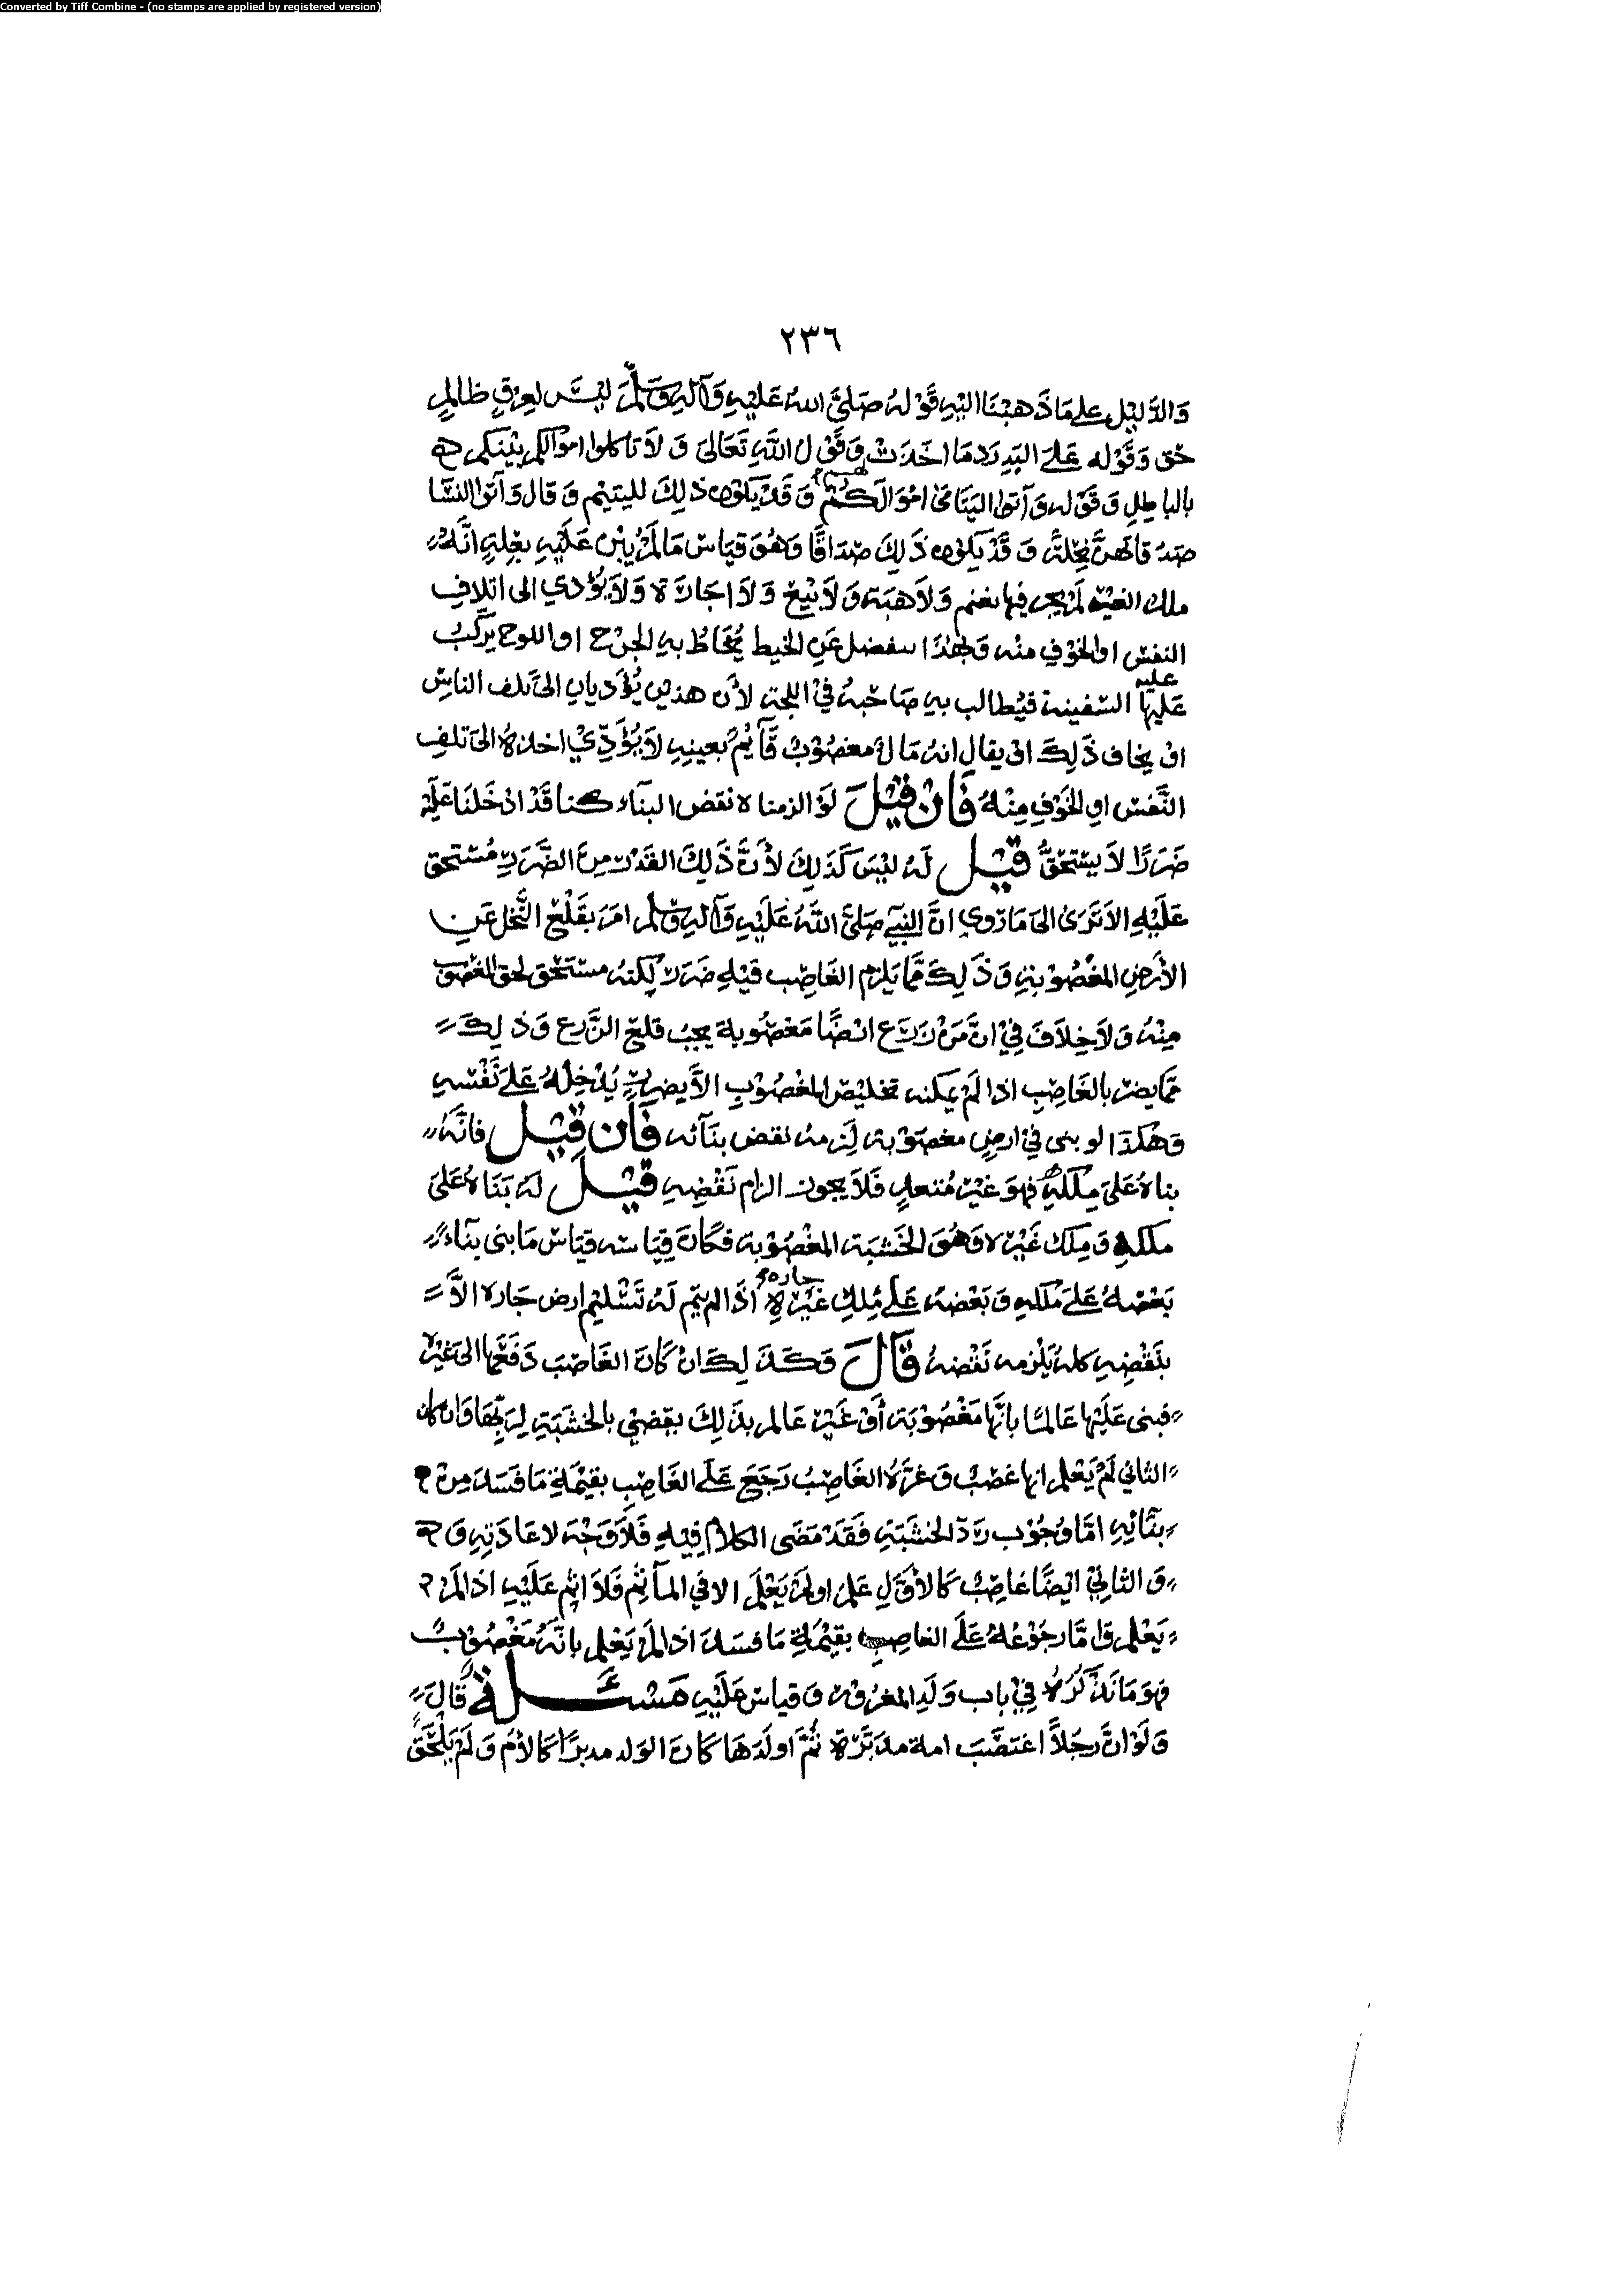 Converted by Tiff Combine - (no stamps are applied by registered version)
٢٣٦
وَالدَّليْل على مَاذَهبْنَا اليْهِ قَوْلهُ صَلىَّ اللهُ عَليْهِ وَآلهِ وَسَلَّمَ ليْسَ لعِرْقٍ ظالمٍ
حق وَقوْله عَلىَ اليَدِ رَدمَا اخَذَتْ وَقَوْل اللَّهِ تَعَالىَ وَلاَ تاكلوا اموَالكم بيْنكم
بالباطِلِ وَقَوْله وَآتوا اليَتَامىَ امْوَالَهُمْ وَقَدْ يَكوْن ذلِكَ لليتيْم وَقال وَآتوا النسَّا
صَدُقاتهنَّ نِحْلةً وَقَدْ يَكوْن ذَلِكَ صَدَاقًا وَهُوَ قيَاسُ مَا لَمْ يبْن عَليْهِ بعِلةِ انَّهُ
ملك الغيْر لمْ يجر فيْها بغنم وَلاَ هبَة وَلاَ بَيْع وَلاَ اجَارَة وَلاَ يُؤدي الى اتلافِ
النفس او الخوْفِ منْه وَبهٰذَا ينفصل عَنِ الخيط يُخاطُ بهِ الجرْح او اللوح يركبُ
عليه
عَليْها السّفينة فيُطالب بهِ صَاحبهُ في اللجة لأن هذيْن يُؤديان الىَ تلف الناسِ
او يخاف ذَلِكَ او يقال انهُ مَالٌ مغصُوْبٌ قَآئمٌ بعينِهِ لاَ يُؤَدِّيْ اخذهُ الىَ تلفِ
النَّفسِ او الخوْفِ مِنْهُ فَانْ قيْلَ لوْ الزمناه نقض البنآء كنا قَدْ ادْخَلنَا عَليْهِ
ضَرَرًا لاَ يسْتحقُّ قيْل لَهُ ليْسَ كَذَلِكَ لأَنَّ ذَلِكَ القدْر مِنَ الضَّرَرِ مُسْتحق
عَليْهِ الاَ تَرَىٰ الىَ مَا رُوِيَ انَّ النبيَّ صَلىَّ اللَّهُ عَليْهِ وَآلهِ وَسَلم امَرَ بقَلْعِ النَّخل عَنِ
الأَرْضِ المغْصُوْبَةِ وَذَلِكَ ممَّا يلزم الغَاصِب فيْهِ ضَرَرٌ لكنهُ مسْتحق لحق المغْصوب
مِنْهُ وَلاَ خِلاَفَ فيْ انَّ مَنْ زَرَعَ ارْضًا مَغْصُوبة يجبُ قلعُ الزَّرع وَذلِكَ
ممَّا يضر بالغَاصِبِ اذا لمْ يمكنه تخليْصَ المغْصُوْبِ الاَّ بضررٍ يُدْخِلهُ عَلىَ نَفْسِهِ
وَهٰكذَا لو بنى في ارضٍ مغصوْبة لَزمهُ نقض بنَآئه فَان قيْل فانَّهُ
بناهُ عَلىَ مِلكهِ فهوَ غَيْر مُتعدٍ فَلاَ يجوز الزام نَقْضِهِ قيْل لَهُ بَنَاهُ عَلىَ
ملكهِ وَمِلك غَيْره وَهُوَ الخَشبَة المغْصُوْبة فكانَ قِيَاسه قيَاسَ مَا بنى بنآءً
بَعْضهُ عَلىَ ملْكهِ وَبَعْضهُ عَلىَ مُلكِ غَيْرهِ اذَا لم يتم لَهُ تَسْليْم ارض جَاره الاَّ
جاره
بنَقْضِهِ كلهُ يَلزمه نَقْضهُ قَالَ وَكَذَلِكَ انْ كَانَ الغَاصِبَ دَفَعَها الىَ غيْره
فبنى عَليْها عَالمًا بانَّها مَغْصُوْبَة أَوْ غَيْرَ عَالم بذَلِكَ يقضيْ بالخشَبَةِ لِرَبِّهَا وَان كان
الثاني لَمْ يَعْلم انها غصْبٌ وَغرَّهُ الغَاصِبُ رَجَعَ عَلىَ الغَاصِبِ بقيْمَةِ مَا فسَدَ مِنْ
بنَآئِهِ امَّا وُجُوْب رَدّ الخشَبَةِ فَقَدْ مَضَى الكلاَم فِيْهِ فَلاَ وَجْهَ لاعَادَتِهِ وَ
وَالثانيْ ايْضًا غاصِبٌ كَالأَوَّلِ عَلمَ او لمَ يَعْلَمْ الا في المأثم فَلاَ اثم عَليْهِ اذا لمْ
يَعْلم وَامَّا رجَوْعُهُ عَلىَ الغاصِبِ بقيْمَةِ مَا فسَدَ اذا لمْ يَعْلم بانَّهُ مَغْصُوْبٌ
فهوَ مَا نَذْكُرُهُ فيْ باب وَلَدِ المغرُوْر وَقيَاس عَليْهِ مَسْئَلة قَالَ
وَلوْ انَّ رَجُلاً اغتصَبَ امة مدَبَّرَة ثُمَّ اولَدَهَا كَانَ الوَلد مدبرًا كَالأُم وَلَمْ يَلْحَقْ